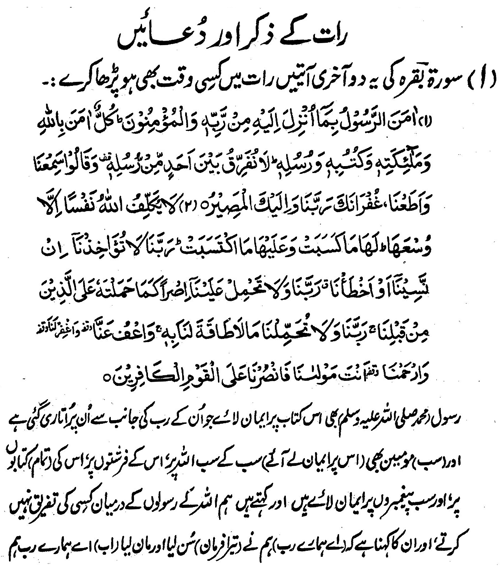 رات کے ذکر اور دُعائیں
(۱) سورۃ بقرہ کی یہ دو آخری آیتیں رات میں کسی وقت بھی ہو پڑھا کرے :۔
(۱) اٰمَنَ الرَّسُوْلُ بِمَآ اُنْزِلَ اِلَيْهِ مِنْ رَّبِّهٖ وَالْمُؤْمِنُوْنَ ؕ كُلٌّ اٰمَنَ بِاللهِ
وَمَلٰٓئِكَتِهٖ وَكُتُبِهٖ وَرُسُلِهٖ ۟ لَا نُفَرِّقُ بَيْنَ اَحَدٍ مِّنْ رُّسُلِهٖ ۟ وَقَالُوْا سَمِعْنَا
وَاَطَعْنَا، غُفْرَانَكَ رَبَّنَا وَاِلَيْكَ الْمَصِيْرُ ○ (۲) لَا يُكَلِّفُ اللهُ نَفْسًا اِلَّا
وُسْعَهَا ؕ لَهَا مَا كَسَبَتْ وَعَلَيْهَا مَا اكْتَسَبَتْ ؕ رَبَّنَا لَا تُؤَاخِذْنَآ اِنْ
نَّسِيْنَآ اَوْ اَخْطَأْنَا ۚ رَبَّنَا وَلَا تَحْمِلْ عَلَيْنَآ اِصْرًا كَمَا حَمَلْتَهٗ عَلَى الَّذِيْنَ
مِنْ قَبْلِنَا ۚ رَبَّنَا وَلَا تُحَمِّلْنَا مَا لَا طَاقَةَ لَنَا بِهٖ ۚ وَاعْفُ عَنَّا وقفه وَاغْفِرْ لَنَا وقفه
وَارْحَمْنَا وقفه اَنْتَ مَوْلٰىنَا فَانْصُرْنَا عَلَى الْقَوْمِ الْكَافِرِيْنَ ○
رسول (محمد صلی اللہ علیہ وسلم) بھی اس کتاب پر ایمان لائے جو اُن کے رب کی جانب سے اُن پر اُتاری گئی ہے
اور (سب) مومنین بھی (اس پر ایمان لے آئے) سب کے سب اللہ پر، اس کے فرشتوں پر، اس کی (تمام) کتابوں
پر، اور سب پیغمبروں پر ایمان لائے ہیں اور کہتے ہیں ہم اللہ کے رسولوں کے درمیان کسی کی تفریق نہیں
کرتے، اور ان کا کہنا ہے کہ (اے ہمارے رب) ہم نے (تیرا فرمان) سُن لیا اور مان لیا (اب) اے ہمارے رب ہم